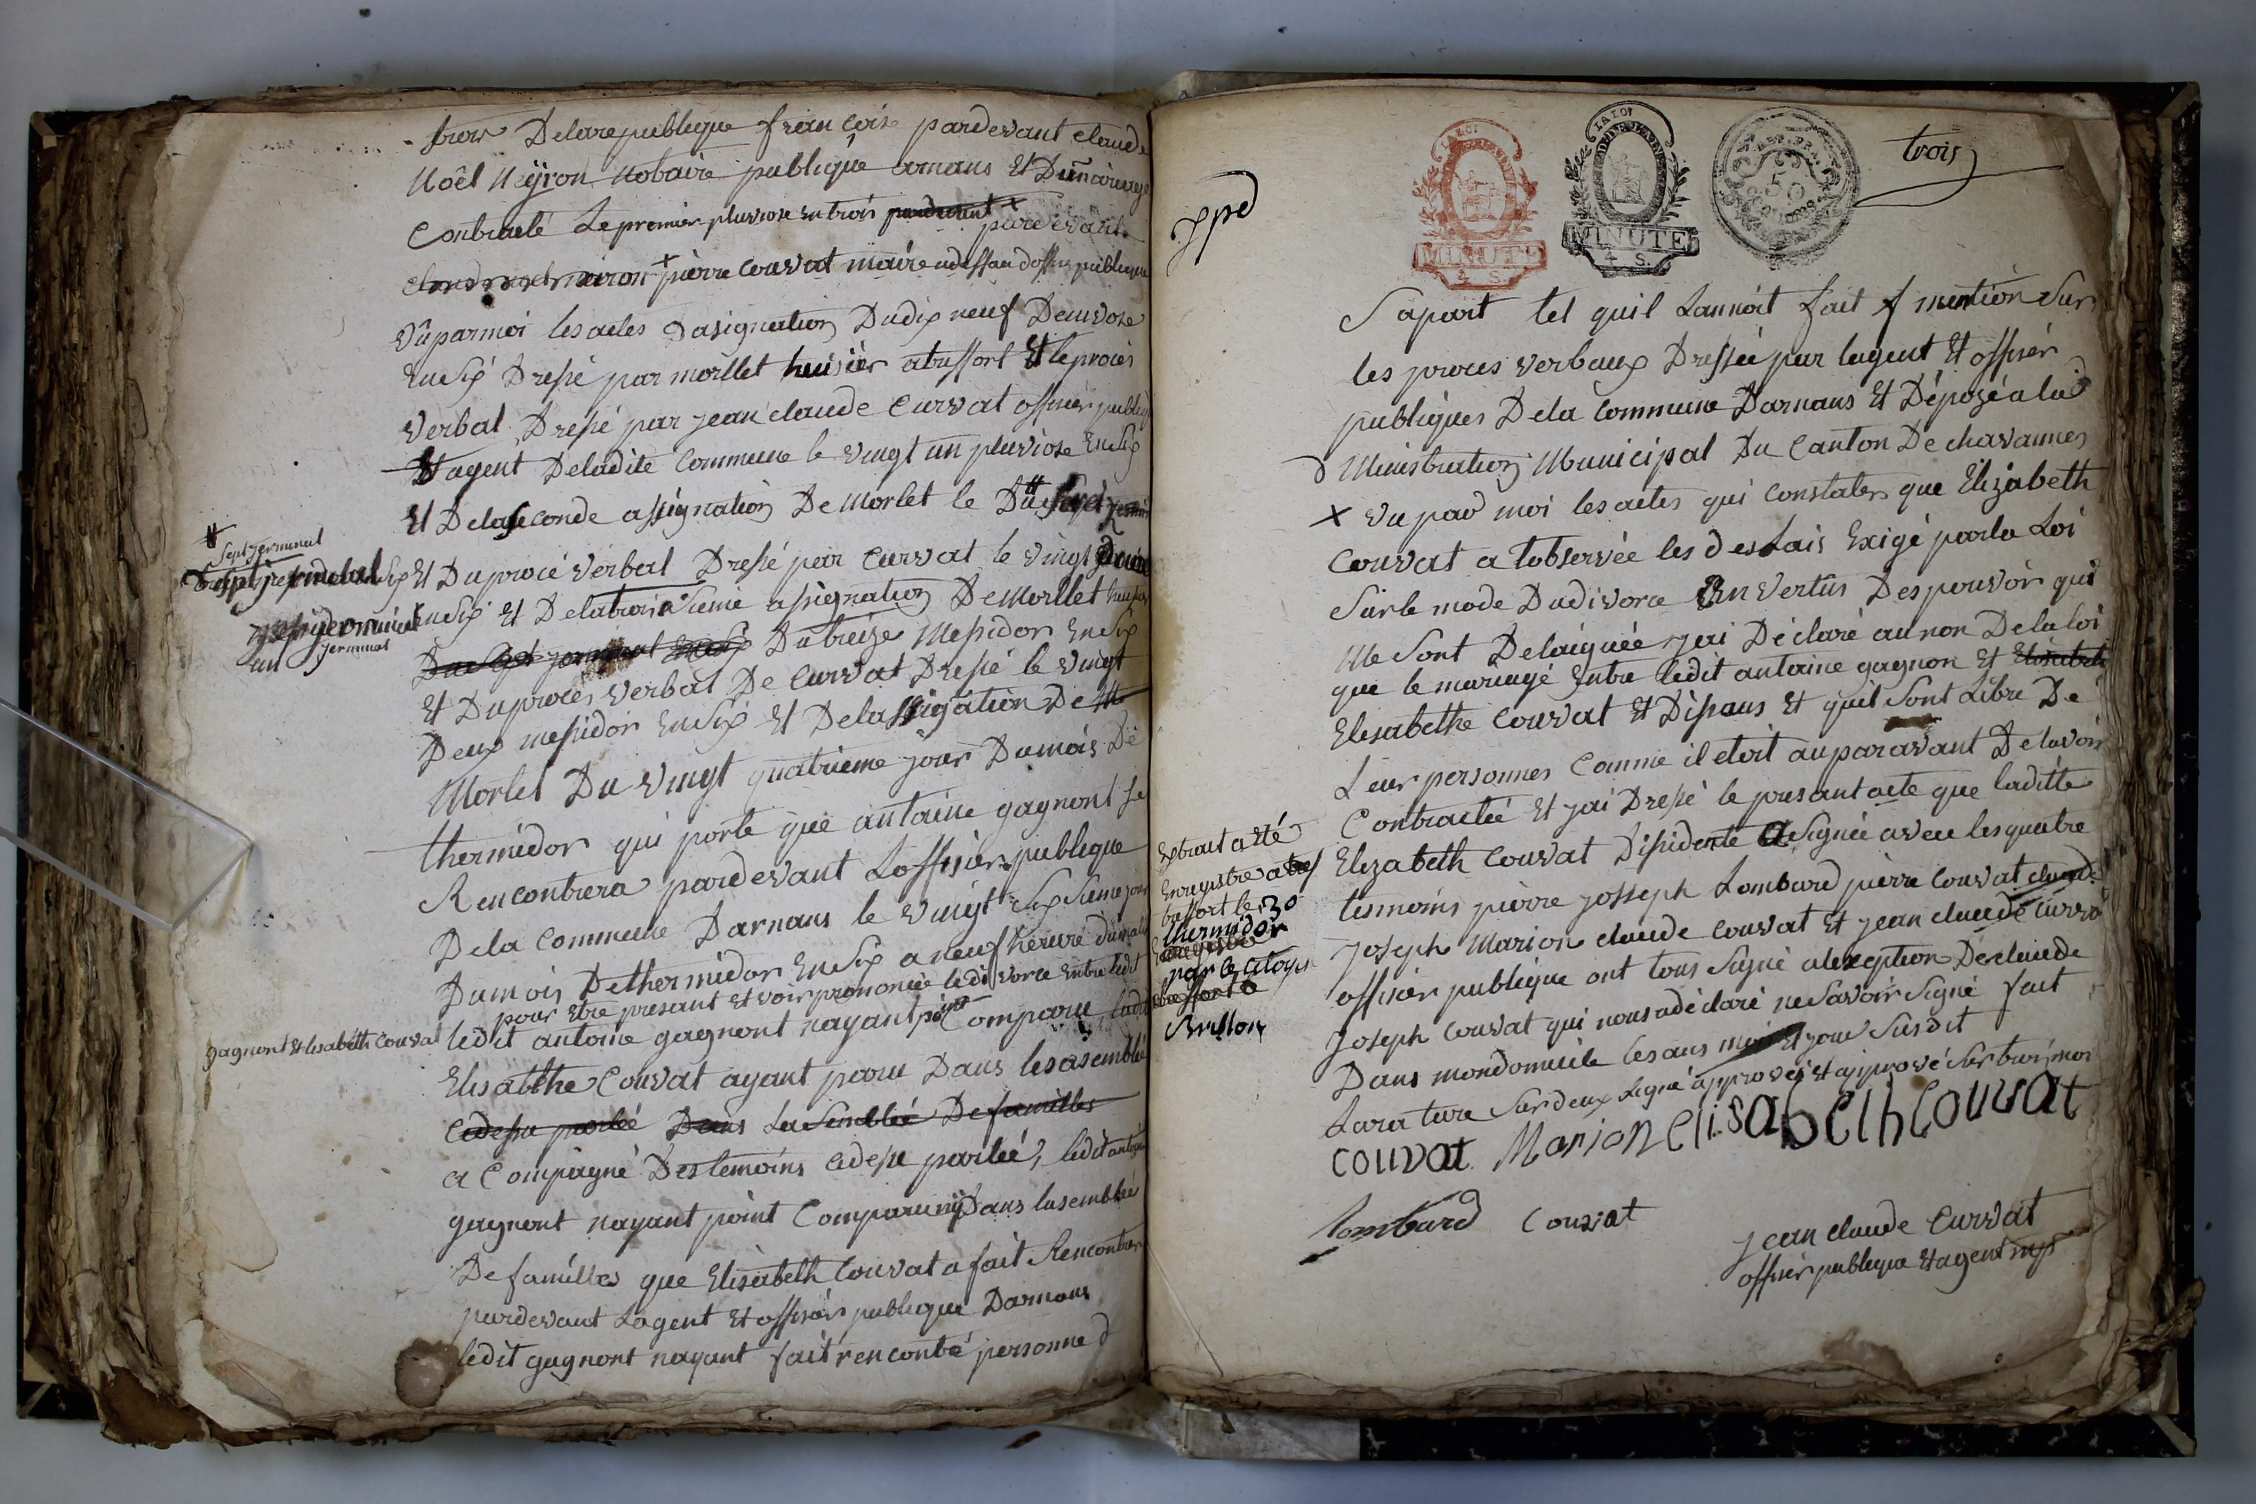 trois De la republique francoise pardevant claude
Noêl Neÿron Nobaire publique arnans Et Dun
Contracté Le premier pluviose En trois pardevant x
pardevant
neiron + pierre couvat maire
vû par moi les actes Dasignation Du dix neuf
En Six Dressé par morllet huisier a treffort Et le procès
verbal Dressé par jean claude Curvat officier public
Et agent De ladite Commune le vingt un pluviose En Six
Et De la seconde assignation De Morlet le Du
Sept jerminal
Et Du procié verbal Dressé par Curvat le vingt
En Six Et De la troisieme assignation De Morllet
jerminal
Du treize Messidor En Six
Et Du procès verbal De Curvat Dressé le vingt
Deux messidor En Six Et De lassigation De
Morlet Du vingt quatrieme jour Du mois De
thermidor qui porte que antoine gagnont se
Rencontrera pardevant Lofficier publique
De la Commune Darnans le vingt Sixsieme jour
Du mois De thermidor En Six a neuf heure Du matin
pour Etre presant Et voir prononcée le divorce Entre ledit
gagnont Et lisabéth Couvat
ledit antoine gagnont nayant point Comparu
Elisabthe Couvat ayant paru Dans les asemblée
cidessu parlée Dans La Semblée De familles
a Compagné Des temoins cidesse parlée, ledit antoine
gagnont nayant point Comparu nÿ Dans lasemblée
De familles que Elisabeth Couvat a fait Rencontrer
pardevant Lagent Et officier publique Darnans
ledit gagnont nayant fait rencontré personne d
trois
MINUTE
4 S.
MINUTE
4 S.
50
Sapart tel quil Lannoit fait f mention Sur
les proces verbaux Dressée par lagent Et officier
publiques De la Commune Darnans Et Dépozé a la
Ministration Municipal Du Canton De chavannes
x vu par moi les actes qui constater que Elizabeth
Couvat a lobservée les deslais Exigé par la Loi
Sur le mode Du divorce En vertus Des pouvoir qui
Me Sont Delaiguée jai Déclaré au non De la loi
que le mariage Entre ledit antoine gagnon Et
Elesabethe Couvat Et Dissous Et quil Sont Libre De
Leur personnes Comme il etoit auparavant De lavoir
Contractée Et jai Dressé le presant acte que laditte
Elizabeth Couvat Disidente a Signée avec les quatre
temoins pierre josseph Lombard pierre Couvat claude
joseph Marion claude couvat Et jean claude Curvat
officier publique ont tous Signé alexception De claude
joseph Couvat qui nous adéclaré ne Savoir Signé fait
Dans mon domicile les ans mois Et jour Susdit
Larature Sur deux Ligne approvée Et apprové Sur trois mos
Extrait a été
Enregistre a
treffort le 30
thermidor
par le Citoyen
Brillon
couvat Marion elisabeth Couvat
Lombard Couvat
jean claude Curvat
officier publique Et agent